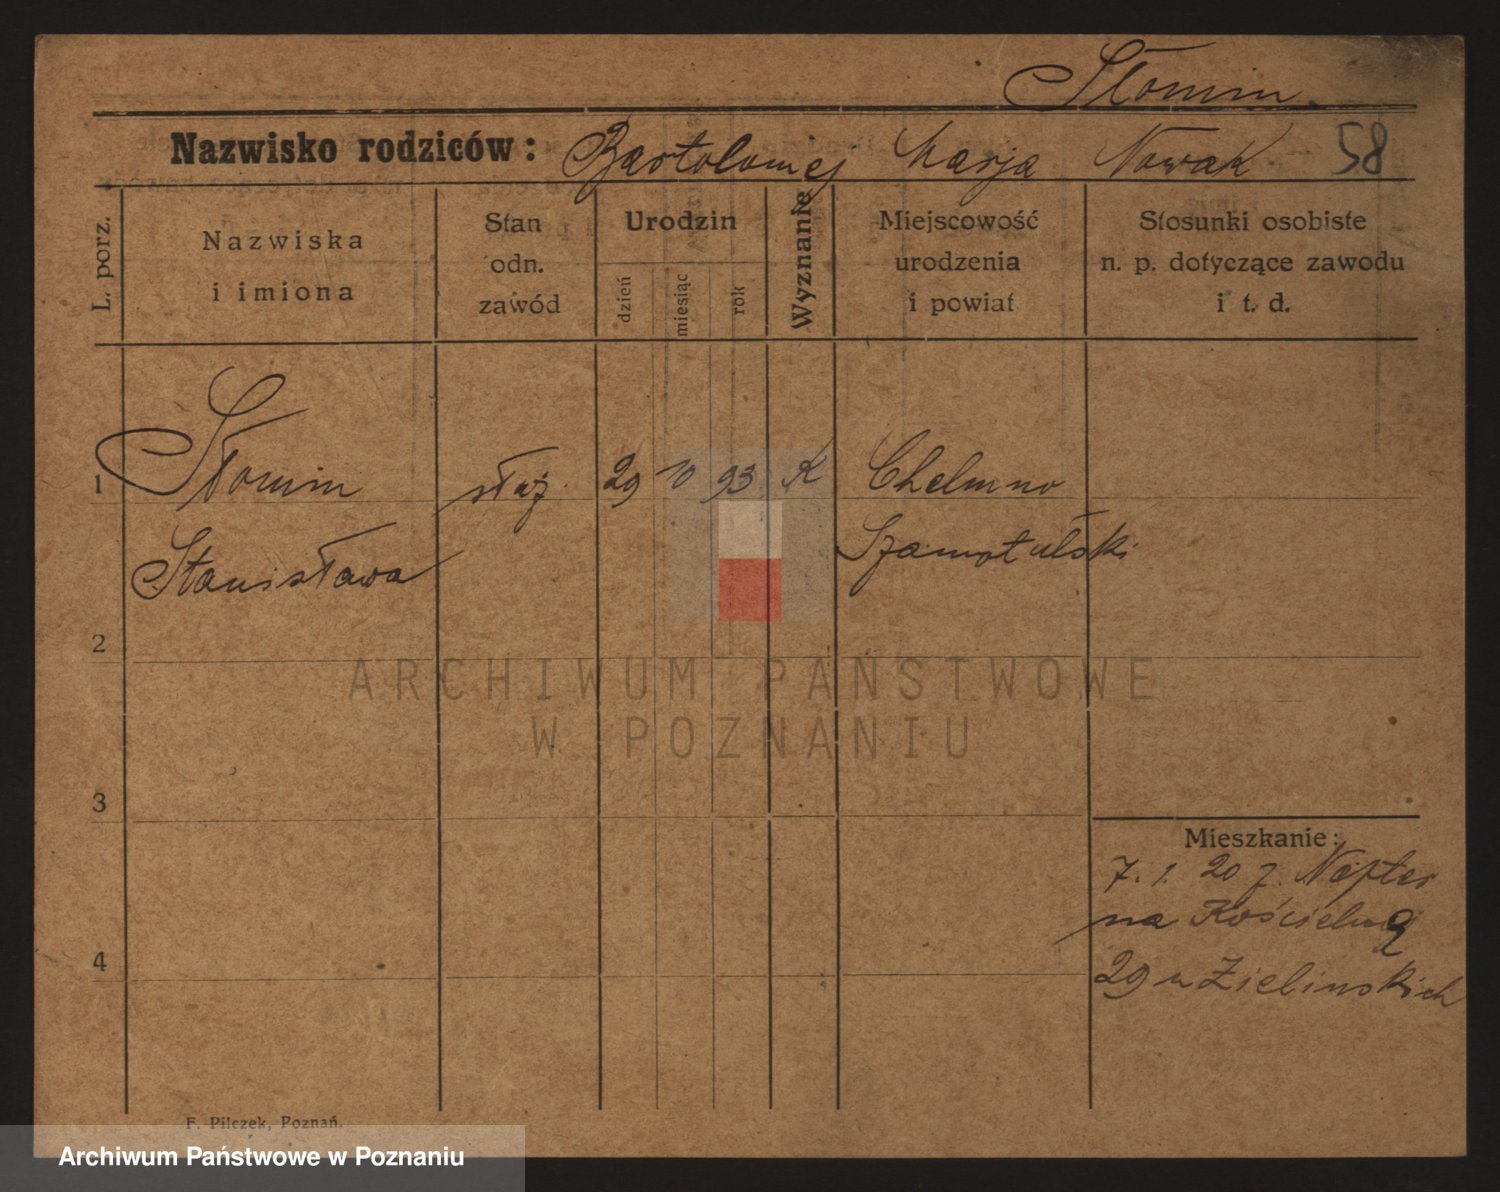 Słomin.
Nazwisko rodziców: Bartolomej Marja Nowak 58
L. porz.
Nazwiska
i imiona
Stan
odn.
zawód
Urodzin
dzień
miesiąc
rok
Wyznanie
Miejscowość
urodzenia
i powiat
Stosunki osobiste
n. p. dotyczące zawodu
i t. d.
1 Słomin służ. 29 10 93 K Chelmno
Stanisława Szamotulski
2
3
4
Mieszkanie:
7. 1. 20 z.
na Kościelną
29 u Zielinskich
F. Pilczek, Poznań.
ARCHIWUM PAŃSTWOWE
W POZNANIU
Archiwum Państwowe w Poznaniu